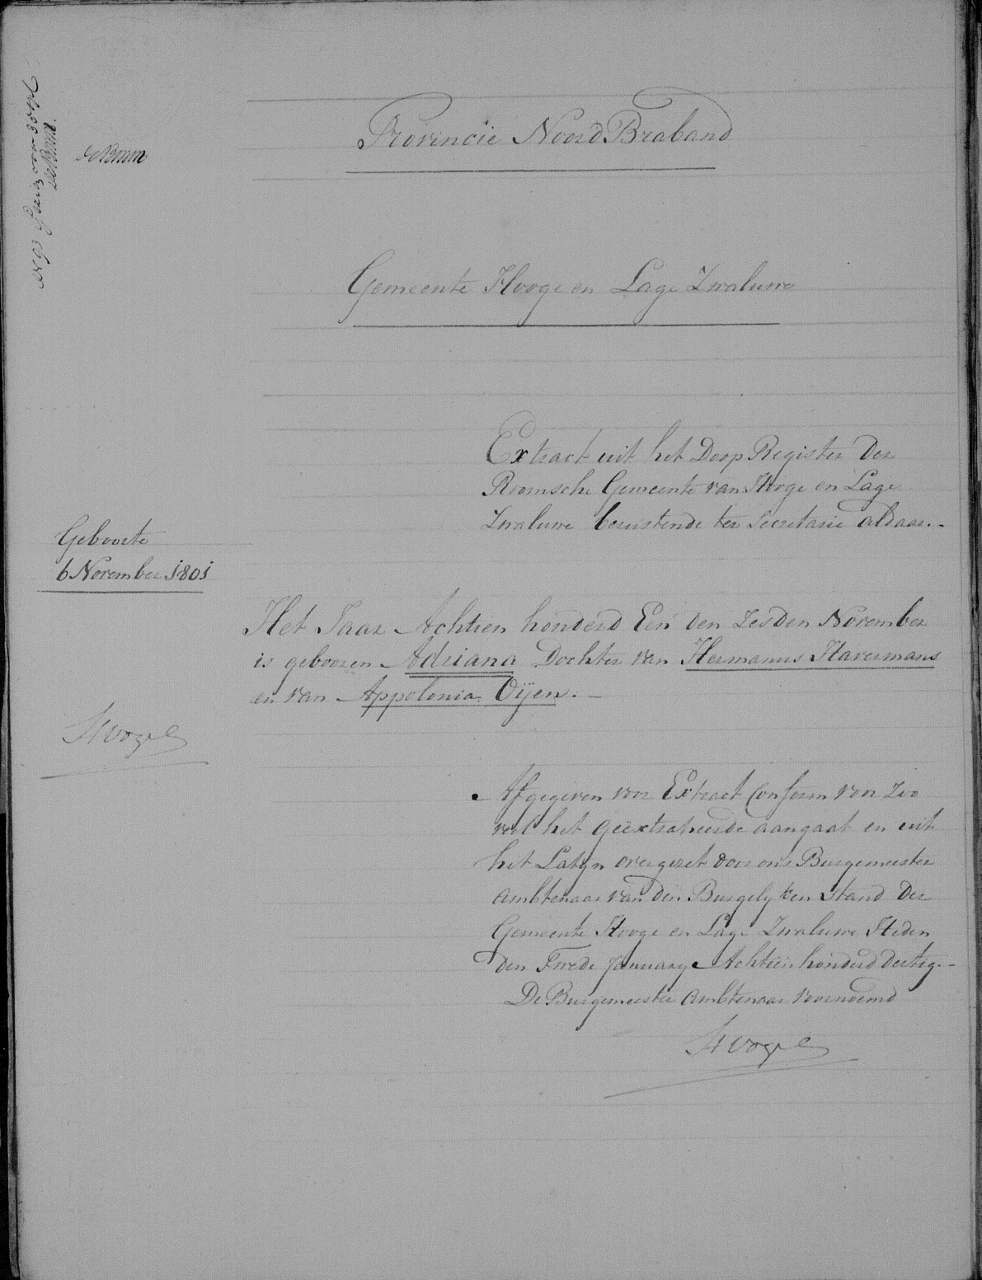 De Bruin
Provincie Noord Braband
Gemeente Hooge en Lage Zwaluwe
Extract uit het Doop Register der
Roomsche Gemeente van Hooge en Lage
Zwaluwe berustende ter Secretarie aldaar.-
Geboorte
6 November 1801
Het Jaar Achtien honderd Een den Zesden November
is gebooren Adriana Dochter van Hermanus Havermans
en van Appolonia Oijen.-
HVogel
Afgegeven voor Extract Conform voor zoo
veel het geëxtraheerde aangaat en uit
het Latyn overgezet door ons Burgemeester
Ambtenaar van den Burgelyken Stand der
Gemeente Hooge en Lage Zwaluwe Heden
den Twede January Achtien honderd dertig.-
De Burgemeester Ambtenaar voornoemd
HVogel